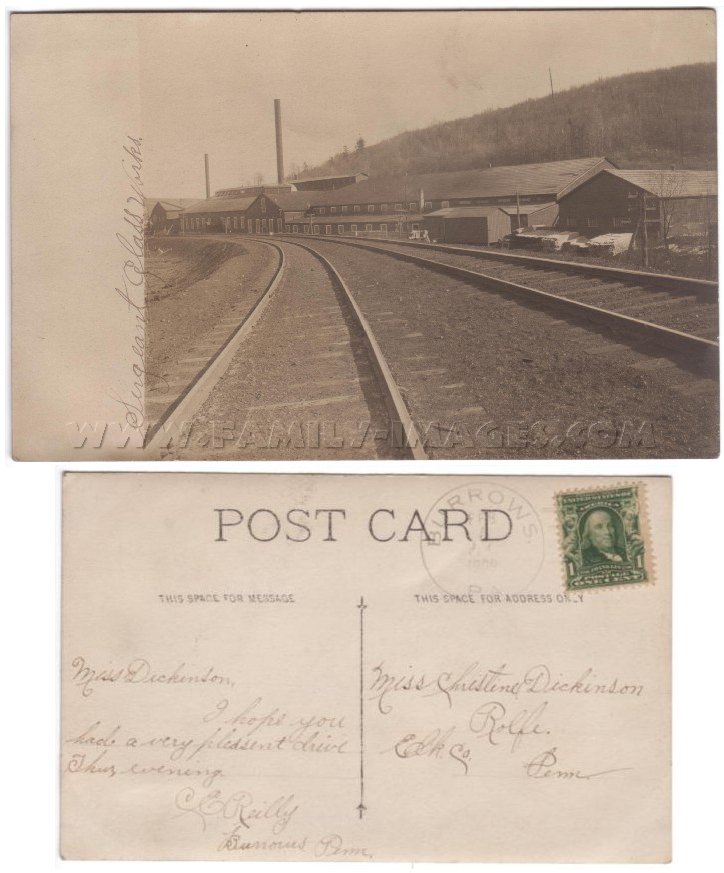 Sergeant Glass Works.
WWW.FAMILY-IMAGES.COM
POST CARD
BURROWS.
1909
PA
UNITED STATES OF AMERICA
1 1
POSTAGE
ONE CENT
THIS SPACE FOR MESSAGE
THIS SPACE FOR ADDRESS ONLY
Miss Dickinson,
I hope you
had a very pleasent drive
Thur evening
C E Reilly
Burrows Penn.
Miss Christine Dickinson
Rolfe.
Elk. Co.
Penn